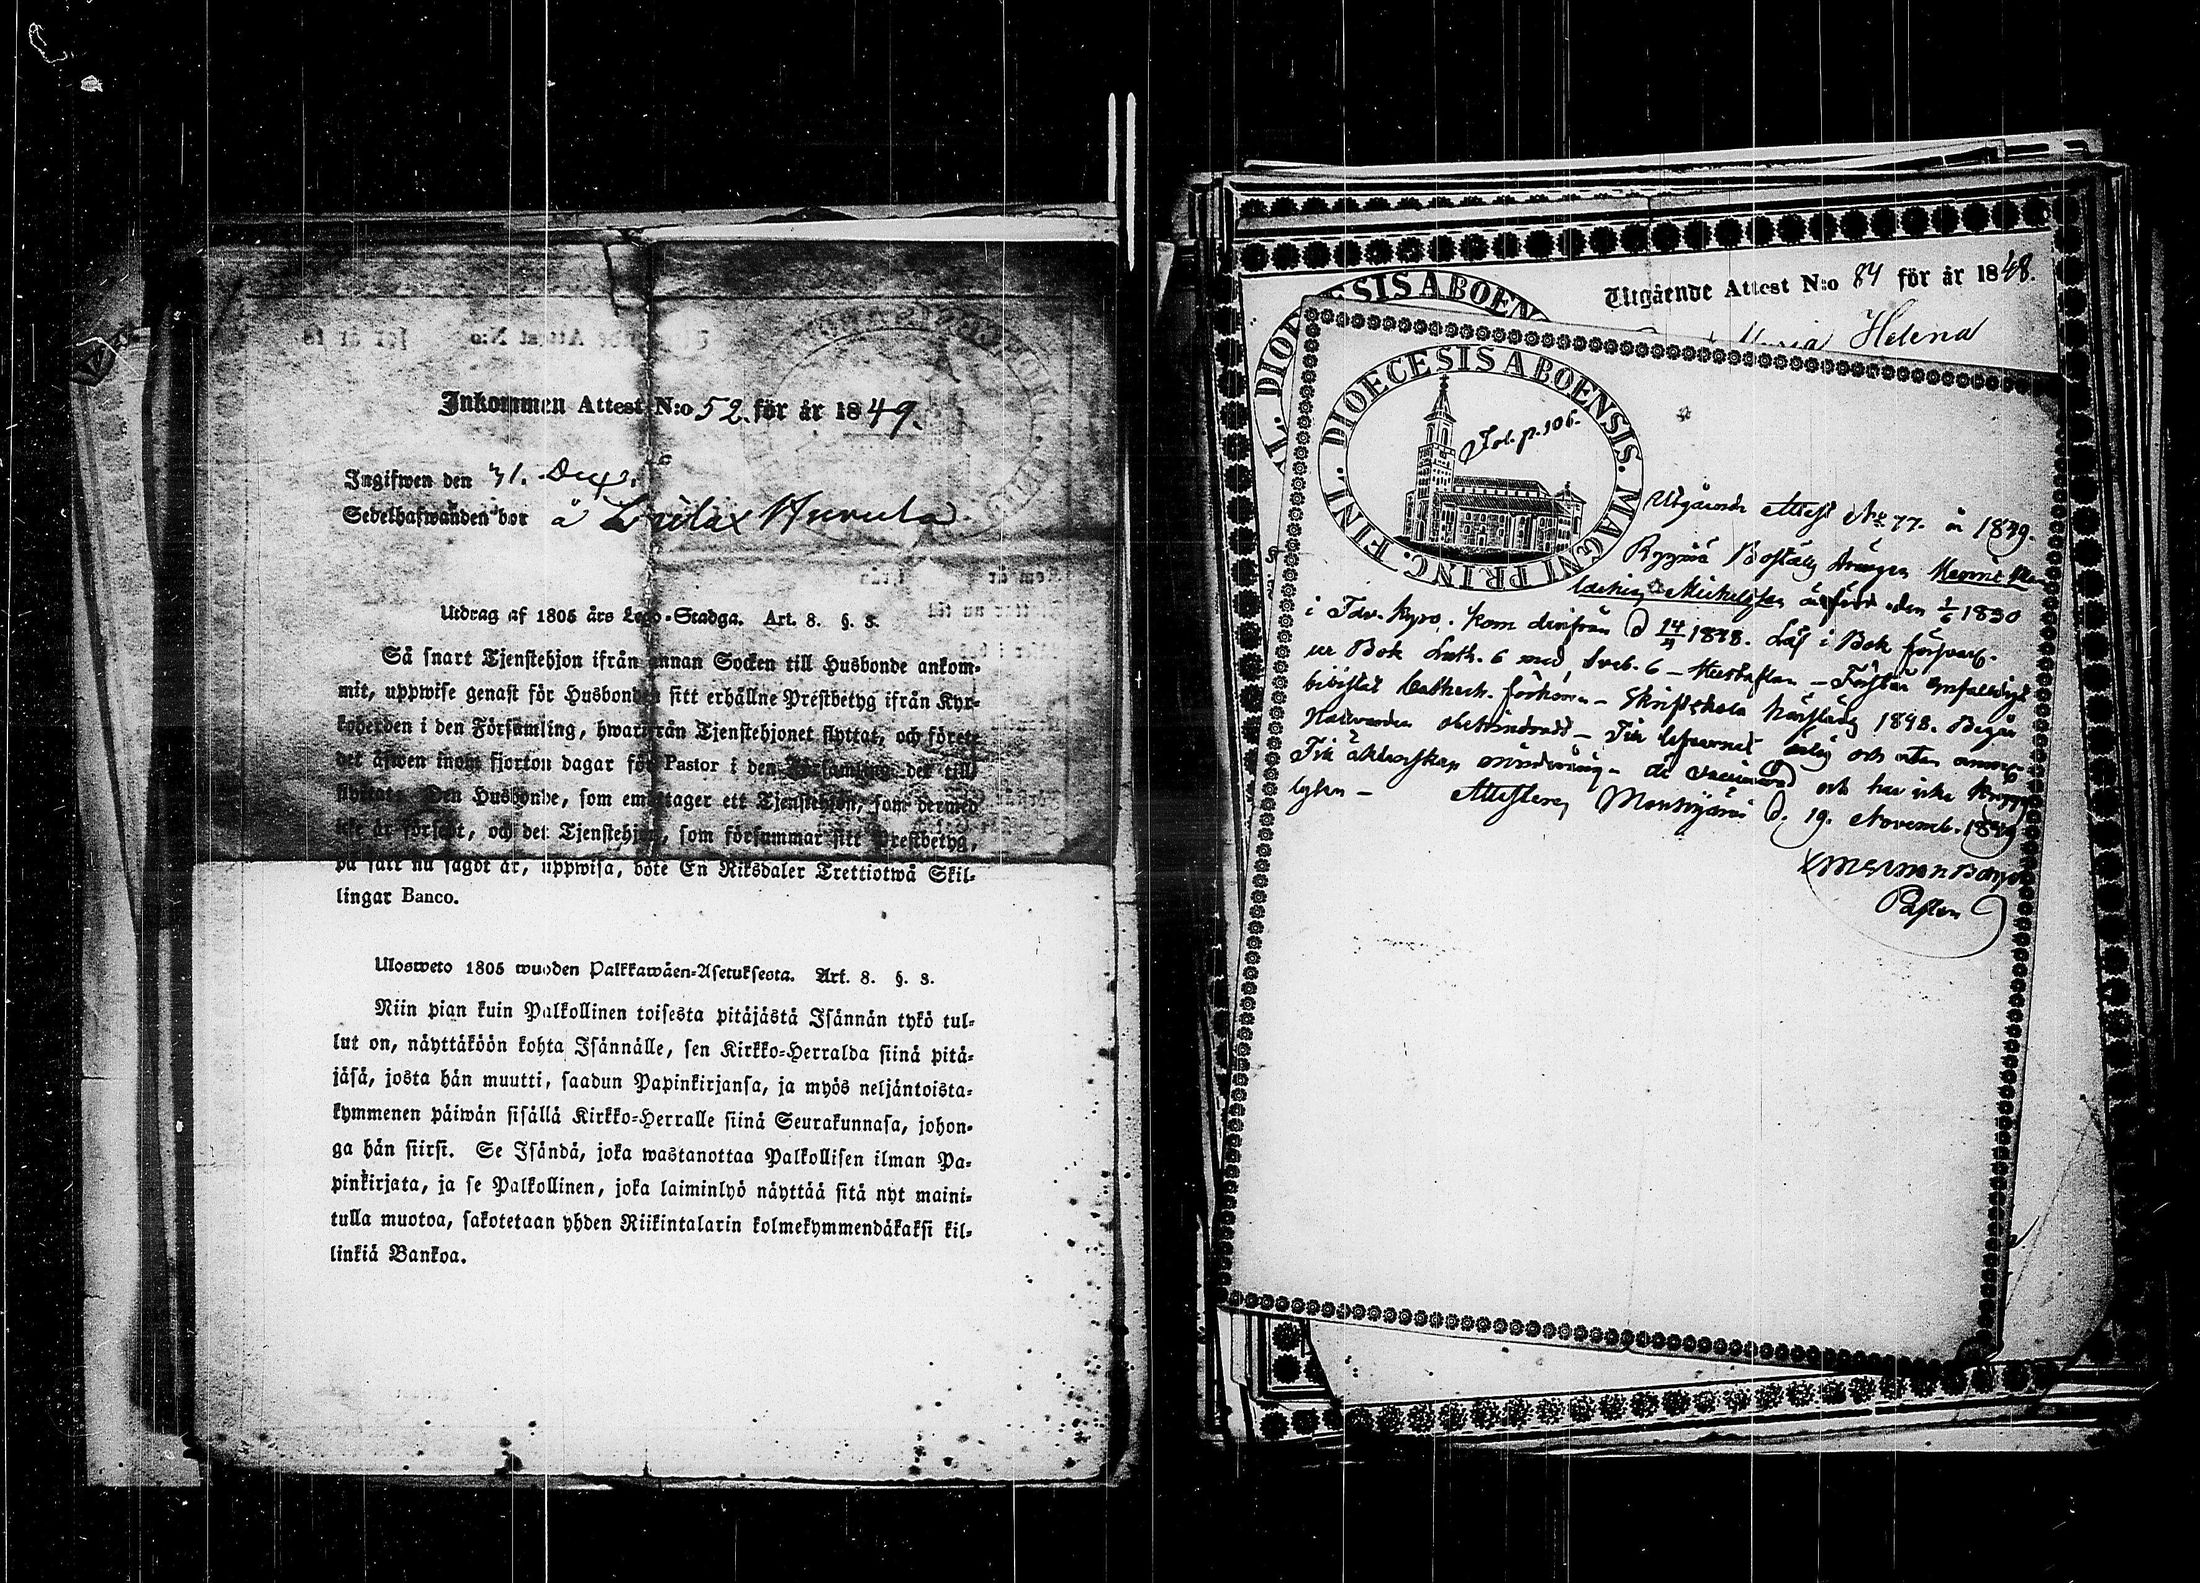 Inkommen Attest N:o 52. för år 1849.
Ingifwen den 31. Dec
Sedelhafwanden bor å Hurula
Utdrag af 1805 års Lego-Stadga. Art. 8. §. 3.
Så snart Tjenstehjon ifrån annan Socken till Husbonde ankom-
mit, uppwise genast för Husbonden sitt erhållne Prestbetyg ifrån Kyr-
koherden i den Församling, hwarifrån Tjenstehjonet flyttat, och förete
det äfwen inom fjorton dagar för Pastor i den Församling, der till
flyttats. Den Husbonde, som emottager ett Tjenstehjon, som dermed
icke är försedt, och det Tjenstehjon, som försummar sitt Prestbetyg,
på sätt nu sagdt är, uppwisa, böte En Riksdaler Trettiotwå Skil-
lingar Banco.
Ulosweto 1805 wuoden Palkkawäen-Asetuksesta. Art. 8. §. 3.
Niin pian kuin Palkollinen toisesta pitäjästä Isännän tykö tul-
lut on, näyttäköön kohta Isännälle, sen Kirkko-Herralda siinä pitä-
jäsä, josta hän muutti, saadun Papinkirjansa, ja myös neljäntoista-
kymmenen päiwän sisällä Kirkko-Herralle siinä Seurakunnasa, johon-
ga hän siirsi. Se Isändä, joka wastanottaa Palkollisen ilman Pa-
pinkirjata, ja se Palkollinen, joka laiminlyö näyttää sitä nyt maini-
tulla muotoa, sakotetaan yhden Riikintalarin kolmekymmendäkaksi kil-
linkiä Bankoa.
Utgående Attest N:o 84 för år 1848.
Maria Helena
DIOECESIS ABOEN
FINL. DIOECESIS ABOENSIS. MAGNI PRINC.
Fol. p. 106.
Utgående Attest No 77. år 1849.
Boställs Drängen
Michelsson är född den 1/6 1830
i Tav. Kyro. Kom derifrån d 14/11 1848. Läs i Bok försvarl.
ur Bok Luth. 6 med Sveb. 6 - Hustaflan - Förstår enfaldigt
bivistat Cathech. förhören - Skriftskola 1848. Begår
Nattvarden obehindradt - Till lefvernet ärlig och utan
Till äktenskap - är vaccinerad och har icke
lyten - Attesterar d. 19. Novemb. 1849
Pastor